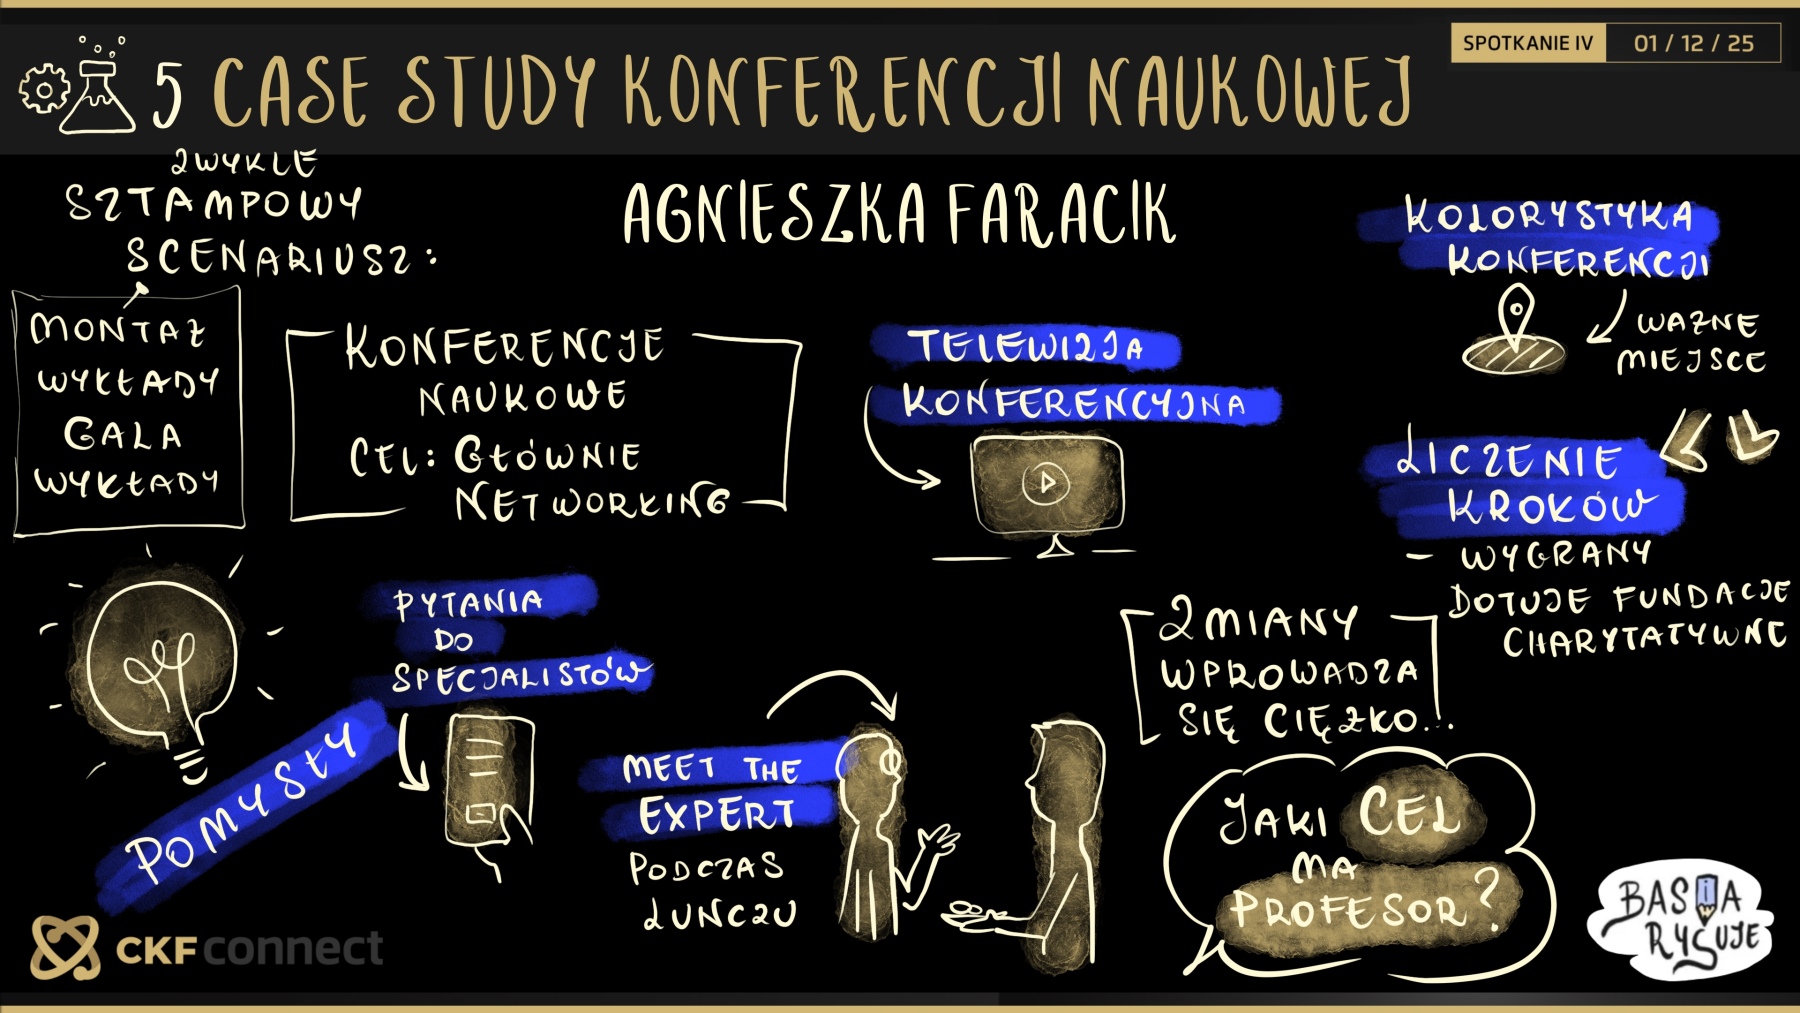 SPOTKANIE IV 01 / 12 / 25
5 CASE STUDY KONFERENCJI NAUKOWEJ
AGNIESZKA FARACIK
ZWYKLE
SZTAMPOWY
SCENARIUSZ:
MONTAŻ
WYKŁADY
GALA
WYKŁADY
KONFERENCJE
NAUKOWE
CEL: GŁÓWNIE
NETWORKING
TELEWIZJA
KONFERENCYJNA
KOLORYSTYKA
KONFERENCJI
WAŻNE
MIEJSCE
LICZENIE
KROKÓW
- WYGRANY
DOTUJE FUNDACJE
CHARYTATYWNE
POMYSŁY
PYTANIA
DO
SPECJALISTÓW
MEET THE
EXPERT
PODCZAS
LUNCZU
ZMIANY
WPROWADZA
SIĘ CIĘŻKO...
JAKI CEL
MA
PROFESOR?
CKF connect
BASIA
RYSUJE